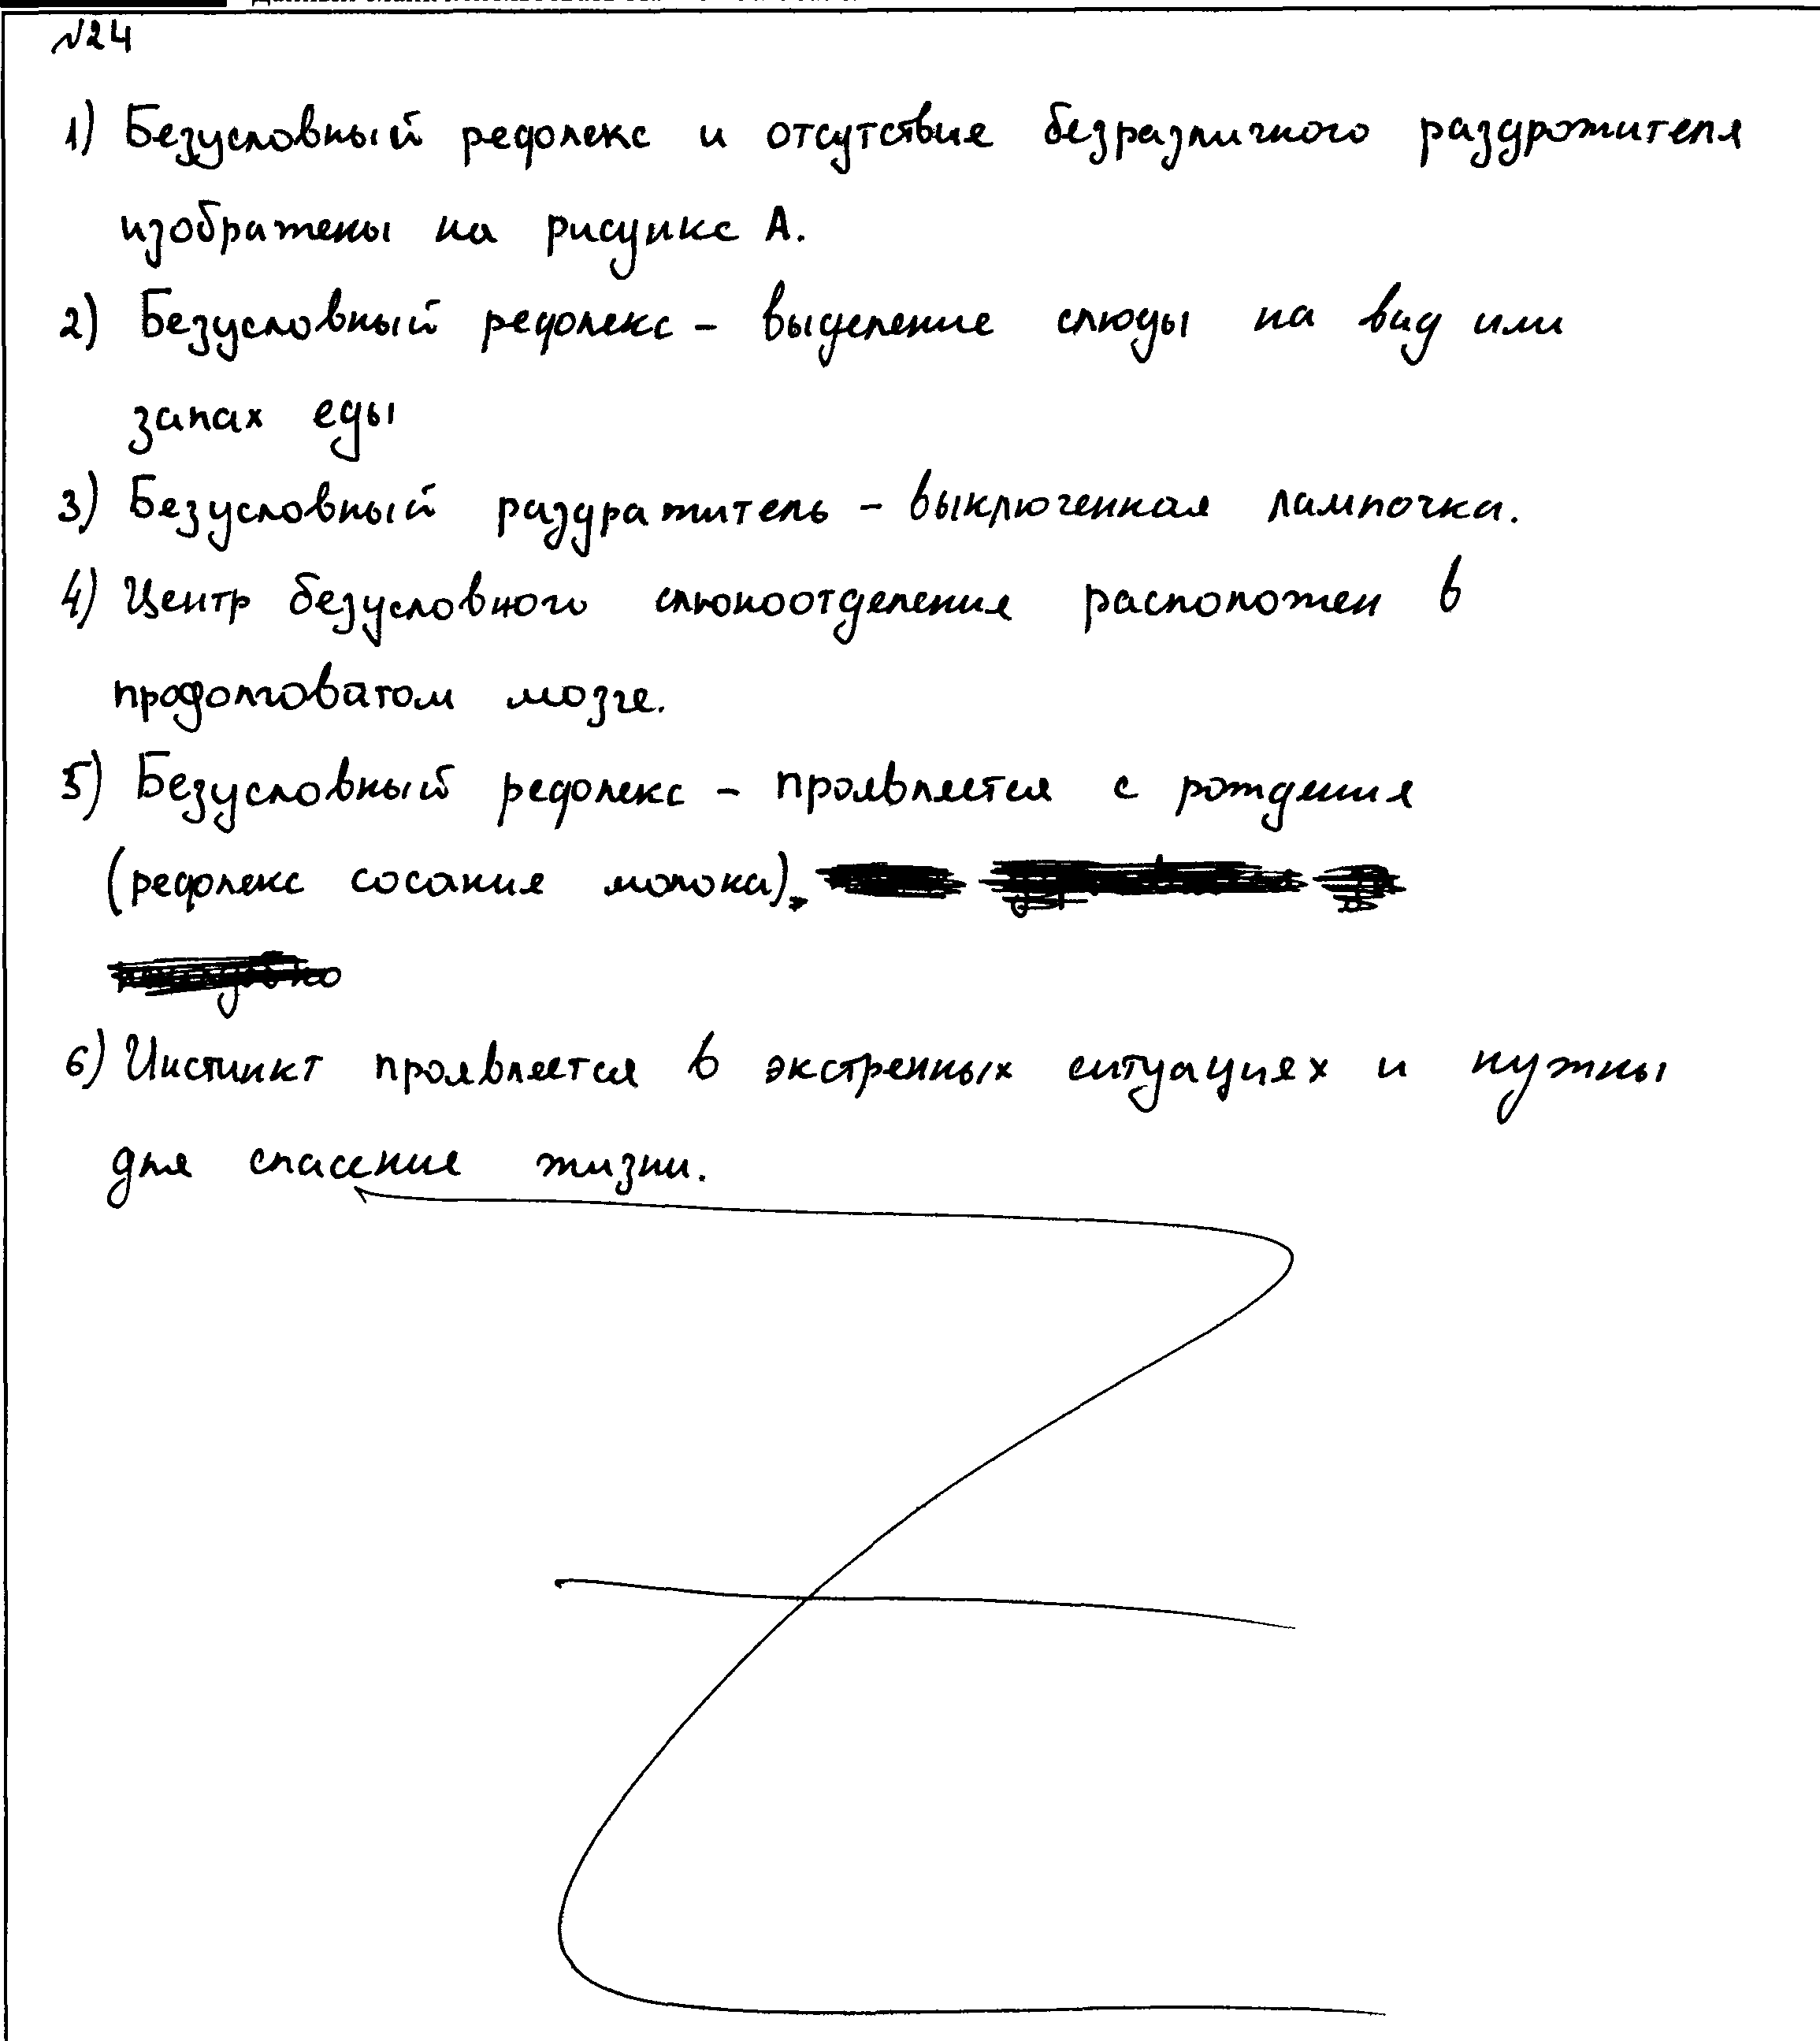 №24
1) Безусловный рефлекс и отсутствие безразличного раздрожителя
изображены на рисунке А.
2) Безусловный рефлекс - выделение слюды на вид или
запах еды
3) Безусловный раздражитель - выключенная лампочка.
4) Центр безусловного слюноотделения расположен в
продолговатом мозге.
5) Безусловный рефлекс - проявляется с рождения
(рефлекс сосание молока).
6) Инстинкт проявляется в экстренных ситуациях и нужны
для спасение жизни.